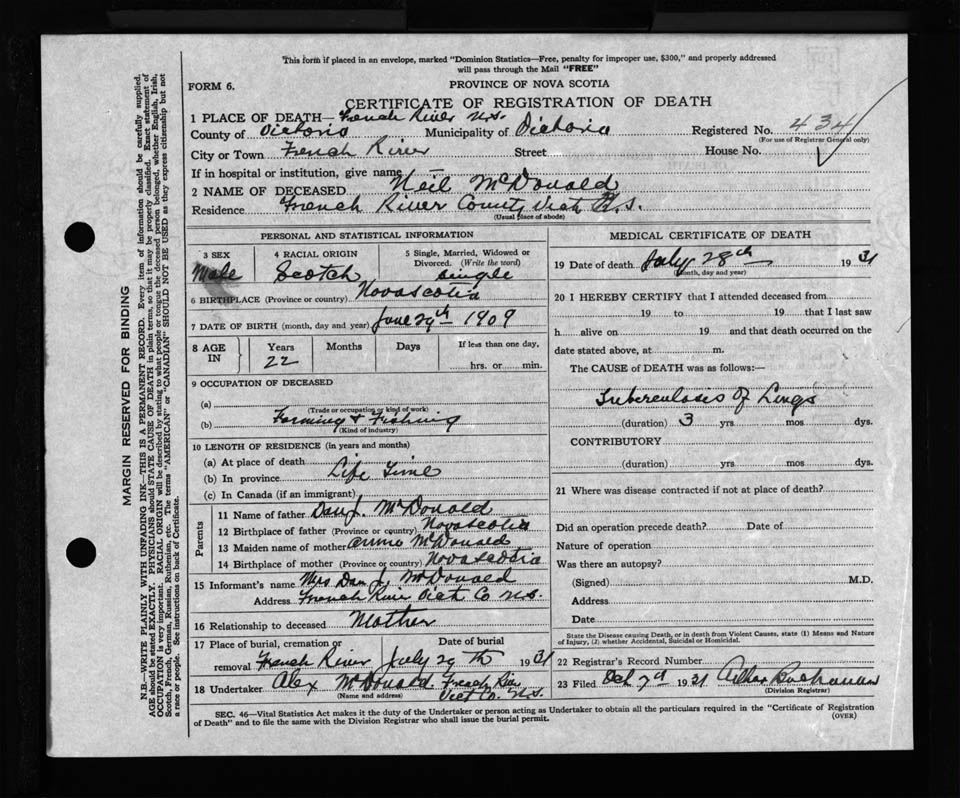 This form if placed in an envelope, marked "Dominion Statistics—Free, penalty for improper use, $300," and properly addressed
will pass through the Mail "FREE"
FORM 6.
PROVINCE OF NOVA SCOTIA
CERTIFICATE OF REGISTRATION OF DEATH
1 PLACE OF DEATH— French River N.S.
County of Victoria Municipality of Victoria Registered No. 434
(For use of Registrar General only)
City or Town French River Street House No.
If in hospital or institution, give name —
2 NAME OF DECEASED Neil McDonald
Residence French River County Vict N.S.
(Usual place of abode)
PERSONAL AND STATISTICAL INFORMATION
3 SEX 4 RACIAL ORIGIN 5 Single, Married, Widowed or
Divorced. (Write the word)
Male Scotch single
6 BIRTHPLACE (Province or country) Novascotia
7 DATE OF BIRTH (month, day and year) June 29th 1909
8 AGE IN Years Months Days If less than one day,
22 hrs. or min.
9 OCCUPATION OF DECEASED
(a)
(Trade or occupation or kind of work)
(b) Farming & Fishing
(Kind of industry)
10 LENGTH OF RESIDENCE (in years and months)
(a) At place of death
(b) In province Life Time
(c) In Canada (if an immigrant)
Parents
11 Name of father Dan J. McDonald
12 Birthplace of father (Province or country) Novascotia
13 Maiden name of mother McDonald
14 Birthplace of mother (Province or country) Novascotia
15 Informant's name Mrs Dan J. McDonald
Address French River Vict Co N.S.
16 Relationship to deceased Mother
17 Place of burial, cremation or Date of burial
removal French River July 29th 1931
18 Undertaker Alex McDonald French River
Vict Co. N.S.
(Name and address)
MEDICAL CERTIFICATE OF DEATH
19 Date of death July 28th 1931
(Month, day and year)
20 I HEREBY CERTIFY that I attended deceased from
19 to 19 that I last saw
h alive on 19 and that death occurred on the
date stated above, at m.
The CAUSE of DEATH was as follows:—
Tuberculosis Of Lungs
(duration) 3 yrs mos dys.
CONTRIBUTORY
(duration) yrs mos dys.
21 Where was disease contracted if not at place of death?
Did an operation precede death? Date of
Nature of operation
Was there an autopsy?
(Signed) M.D.
Address
Date
State the Disease causing Death, or in death from Violent Causes, state (1) Means and Nature
of Injury, (2) whether Accidental, Suicidal or Homicidal.
22 Registrar's Record Number
23 Filed 7th 1931 Buchanan
(Division Registrar)
SEC. 46—Vital Statistics Act makes it the duty of the Undertaker or person acting as Undertaker to obtain all the particulars required in the "Certificate of Registration
of Death" and to file the same with the Division Registrar who shall issue the burial permit.
(OVER)
MARGIN RESERVED FOR BINDING
N.B.—WRITE PLAINLY WITH UNFADING INK—THIS IS A PERMANENT RECORD. Every item of information should be carefully supplied.
AGE should be stated EXACTLY. PHYSICIANS should STATE CAUSE OF DEATH in plain terms, so that it may be properly classified. Exact statement of
OCCUPATION is very important. RACIAL ORIGIN will be described by stating to what people or tongue the deceased person belonged, whether English, Irish,
Scotch, French, German, Russian, Ruthenian, etc. The terms "AMERICAN" or "CANADIAN" SHOULD NOT BE USED as they express citizenship but not
a race or people. See instructions on back of Certificate.